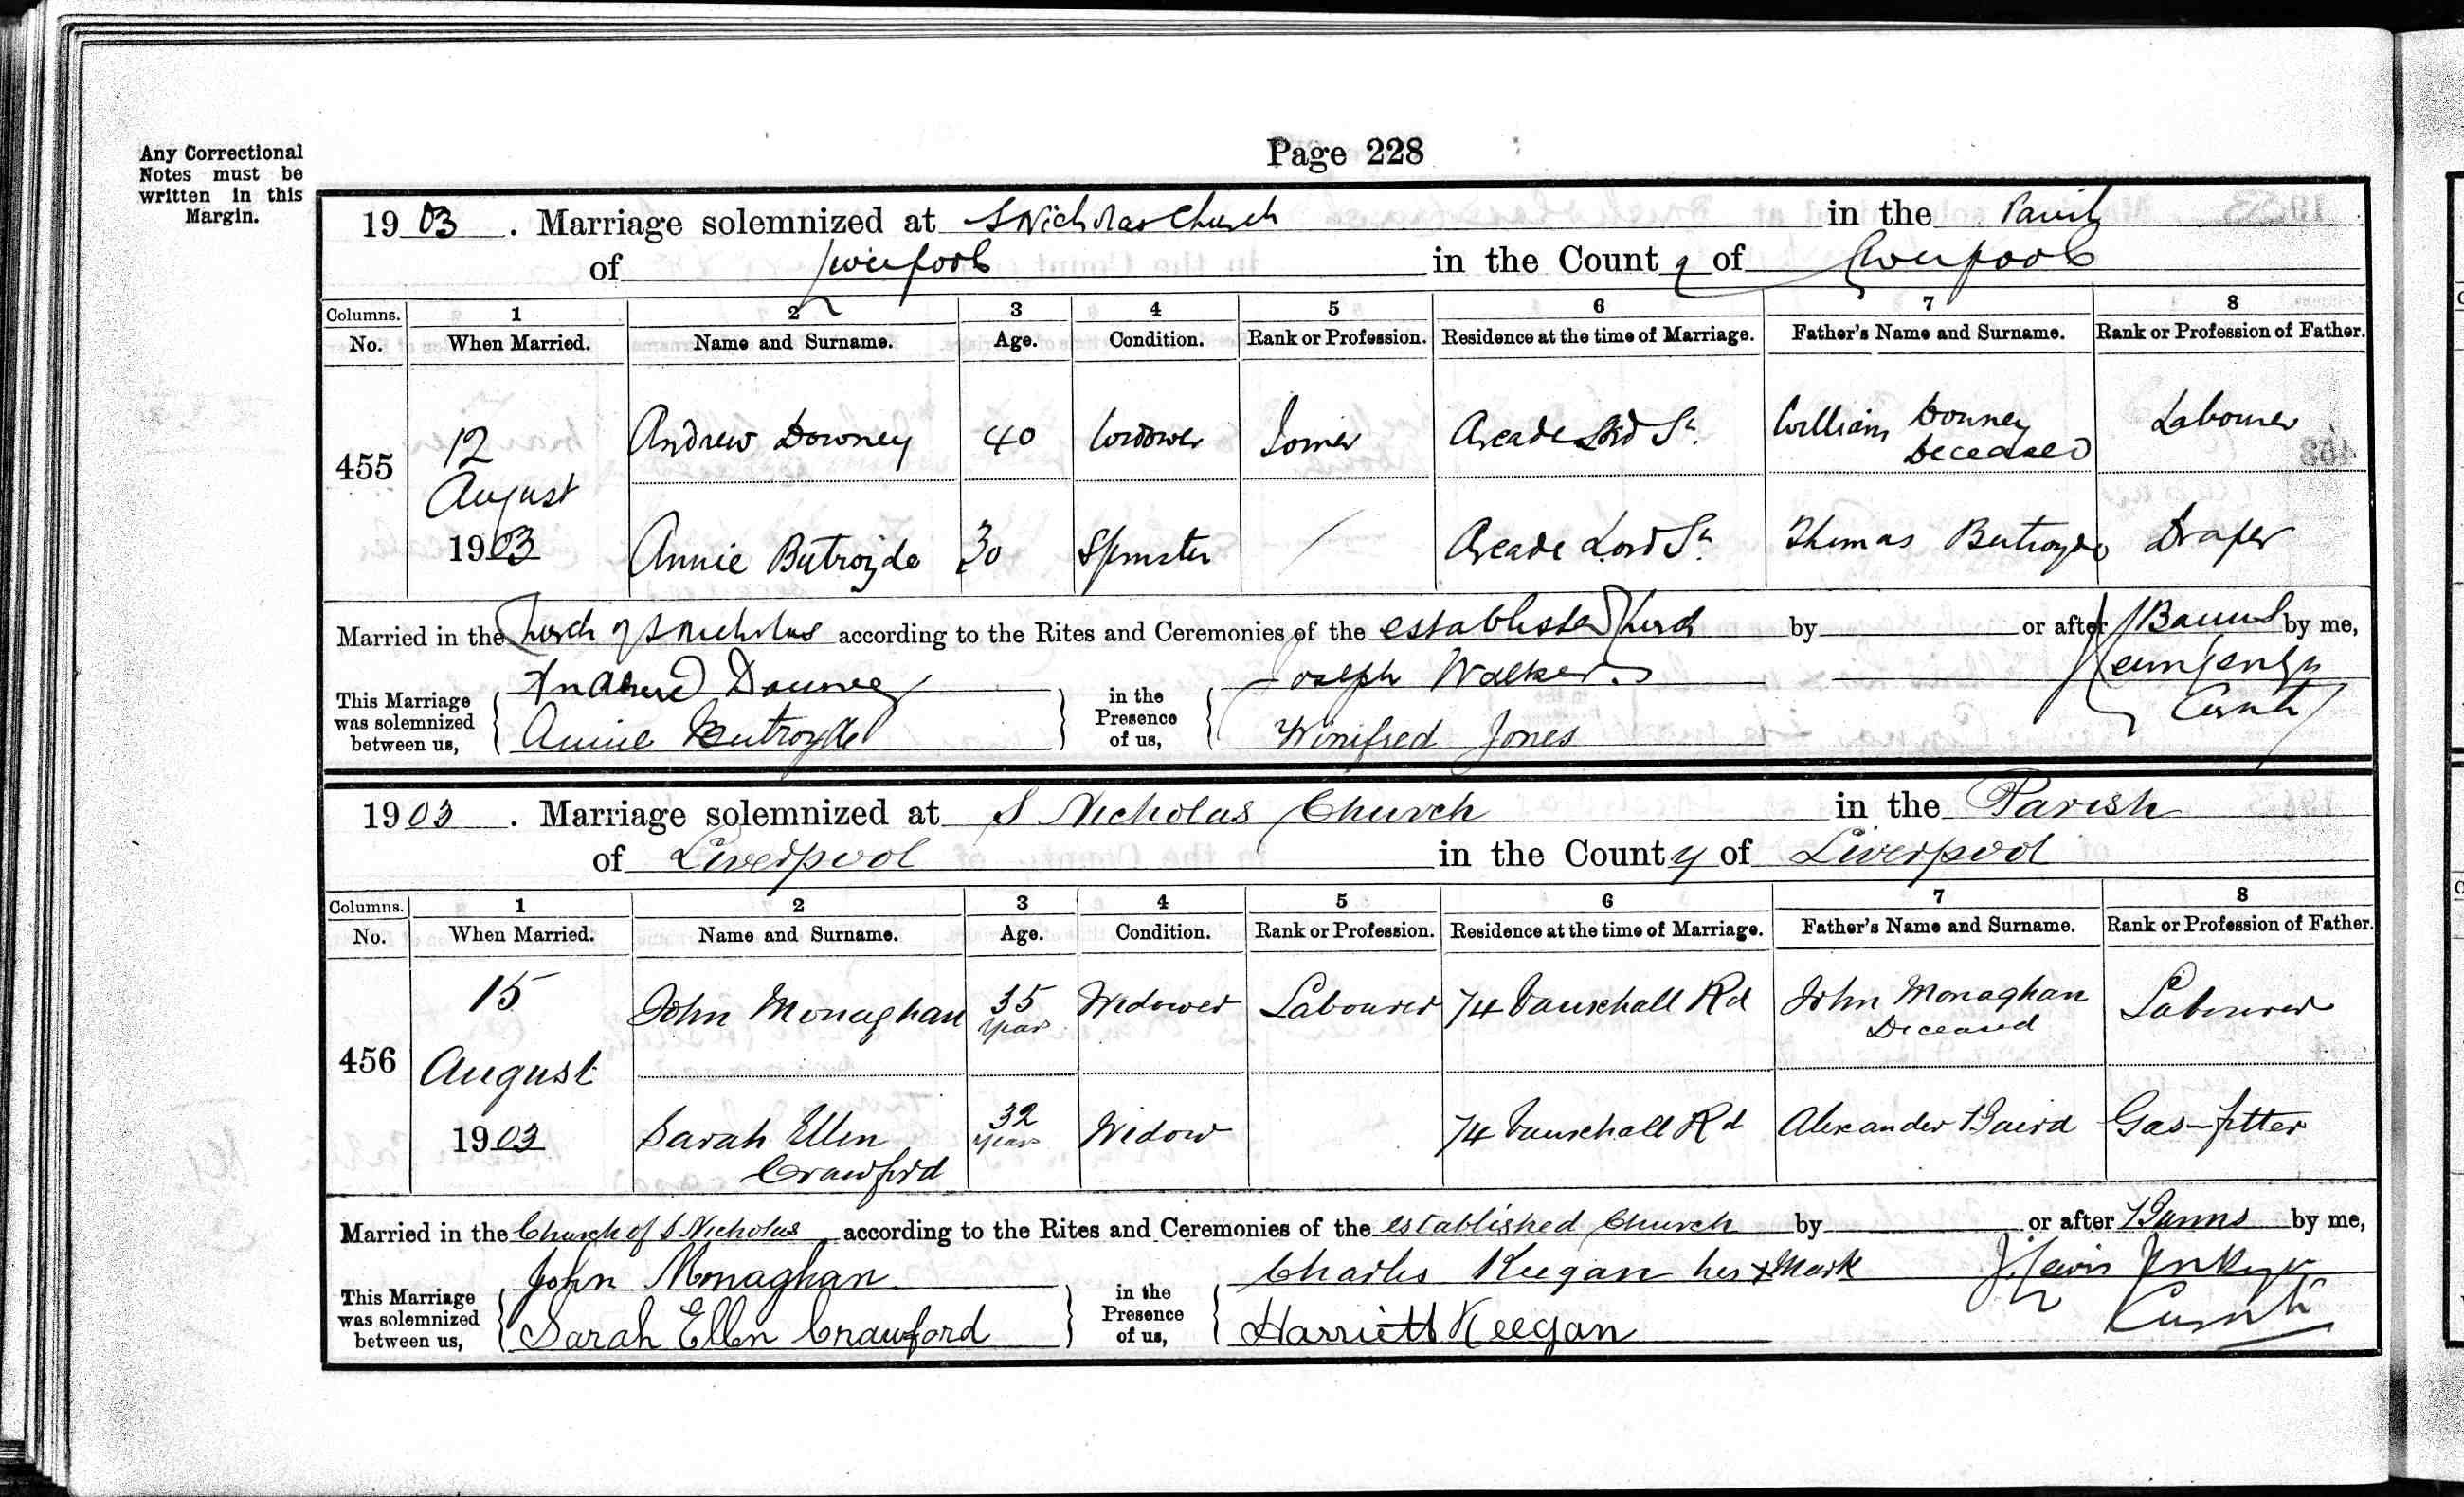 Any Correctional
Notes must be
written in this
Margin.
Page 228
1903. Marriage solemnized at S Nicholas Church in the Parish
of Liverpool in the County of Liverpool
Columns. 1 2 3 4 5 6 7 8
No. When Married. Name and Surname. Age. Condition. Rank or Profession. Residence at the time of Marriage. Father's Name and Surname. Rank or Profession of Father.
455 12 August 1903
Andrew Downey 40 Widower Joiner Arcade Lord St. William Downey Deceased Labourer
Annie Butroyde 30 Spinster / Arcade Lord St. Thomas Butroyde Draper
Married in the Church of S Nicholas according to the Rites and Ceremonies of the established Church by or after Banns by me,
This Marriage was solemnized between us, Andrew Downey in the Presence of us, Joseph Walker
Annie Butroyde Winifred Jones Curate
1903. Marriage solemnized at S Nicholas Church in the Parish
of Liverpool in the County of Liverpool
Columns. 1 2 3 4 5 6 7 8
No. When Married. Name and Surname. Age. Condition. Rank or Profession. Residence at the time of Marriage. Father's Name and Surname. Rank or Profession of Father.
456 15 August 1903
John Monaghan 35 years Widower Labourer 74 Vauxhall Rd John Monaghan Deceased Labourer
Sarah Ellen Crawford 32 years Widow 74 Vauxhall Rd Alexander Baird Gas-fitter
Married in the Church of S Nicholas according to the Rites and Ceremonies of the established Church by or after Banns by me,
This Marriage was solemnized between us, John Monaghan in the Presence of us, Charles Keegan his x Mark J. Lewis Jenkyn
Sarah Ellen Crawford Harriett Keegan Curate